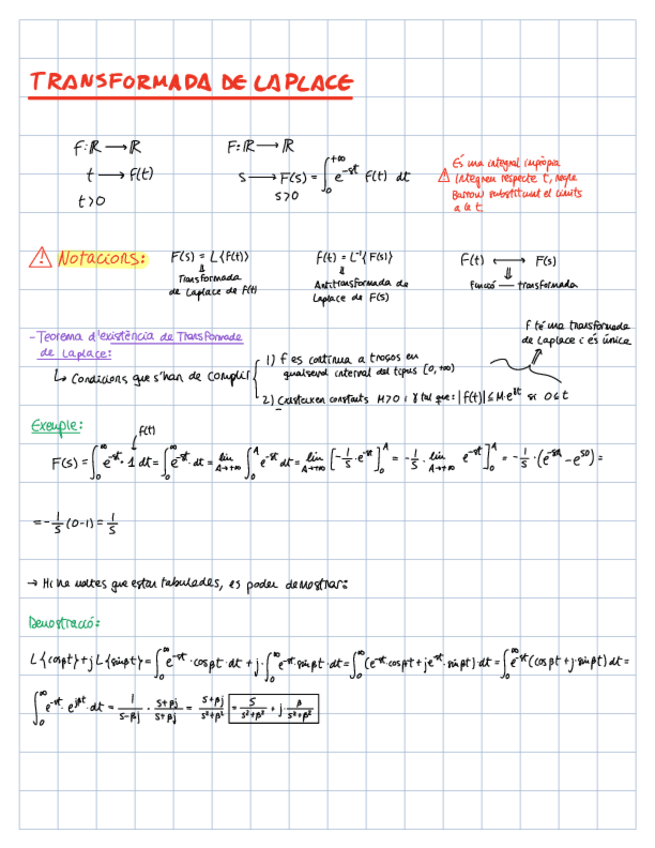 TRANSFORMADA DE LAPLACE
F: ℝ → ℝ
t → f(t)
t>0
F: ℝ → ℝ
s → F(s) = ∫₀^{+∞} e^{-st} f(t) dt
s>0
És una integral impròpia
Integrem respecte t, regla
Barrow substituint el límits
a la t
Notacions:
F(s) = L{f(t)}
⇓
Transformada
de Laplace de f(t)
f(t) = L⁻¹{F(s)}
⇓
Antitransformada de
Laplace de F(s)
F(t) ⟷ F(s)
⇓
Funció — transformada
- Teorema d'existència de Transformada
de Laplace:
↳ Condicions que s'han de complir
1) f es continua a troços en
qualsevol interval del tipus [0,+∞)
2) existeixen constants M>0 i γ tal que: |f(t)| ≤ M·e^{γt} si 0≤t
f té una transformada
de Laplace i és única
Exemple:
f(t)
F(s) = ∫₀^∞ e^{-st}·1 dt = ∫₀^∞ e^{-st}·dt = lim_{A→+∞} ∫₀^A e^{-st} dt = lim_{A→+∞} [-1/s·e^{-st}]₀^A = -1/s · lim_{A→+∞} e^{-st}]₀^A = -1/s·(e^{-sA} - e^{s0}) =
= -1/s (0-1) = 1/s
→ Hi ha voltes que estan tabulades, es poden demostrar:
Demostració:
L{cosβt} + j L{sinβt} = ∫₀^∞ e^{-st}·cosβt·dt + j·∫₀^∞ e^{-st}·sinβt·dt = ∫₀^∞ (e^{-st}·cosβt + j e^{-st}·sinβt)·dt = ∫₀^∞ e^{-st}(cosβt + j·sinβt) dt =
∫₀^∞ e^{-st}·e^{jβt}·dt = 1/(s-βj) · (s+βj)/(s+βj) = (s+βj)/(s²+β²) = s/(s²+β²) + j·β/(s²+β²)